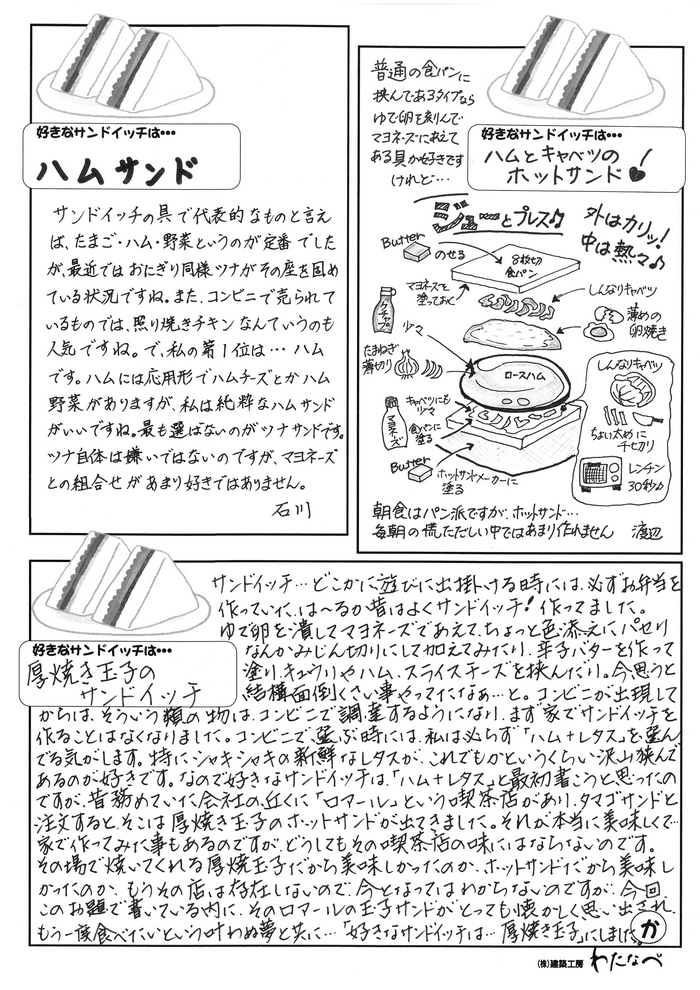 好きなサンドイッチは･･･
ハムサンド
サンドイッチの具で代表的なものと言え
ば、たまご・ハム・野菜というのが定番でした
が、最近ではおにぎり同様ツナがその座を固め
ている状況ですね。また、コンビニで売られて
いるものでは、照り焼きチキンなんていうのも
人気ですね。で、私の第1位は… ハム
です。ハムには応用形でハムチーズとかハム
野菜がありますが、私は純粋なハムサンド
がいいですね。最も選ばないのがツナサンドです。
ツナ自体は嫌いではないのですが、マヨネーズ
との組合せがあまり好きではありません。
石川
普通の食パンに
挟んであるタイプなら
ゆで卵を刻んで
マヨネーズにあえて
ある具が好きです
けれど…
好きなサンドイッチは･･･
ハムとキャベツの
ホットサンド♥!
ジューとプレス♫
外はカリッ!
中は熱々♪
Butter
のせる
8枚切
食パン
マヨネーズを
塗っておく
しんなりキャベツ
ケチャップ
少々
薄めの
卵焼き
たまねぎ
薄切り
ロースハム
しんなりキャベツ
マヨネーズ
キャベツにも
少々
食パンに
塗る
ちょい太めに
千切り
Butter
ホットサンドメーカーに
塗る
レンチン
30秒位
朝食はパン派ですが、ホットサンド…
毎朝の慌ただしい中ではあまり作れません 渡辺
好きなサンドイッチは･･･
厚焼き玉子の
サンドイッチ
サンドイッチ…どこかに遊びに出掛ける時には、必ずお弁当を
作っていた、は～るか昔はよくサンドイッチ!作ってました。
ゆで卵を潰してマヨネーズであえて、ちょっと色添えにパセリ
なんかみじん切りにして加えてみたり、辛子バターを作って
塗り、キュウリやハム、スライスチーズを挟んだり。今思うと
結構面倒くさい事やってたなぁ…と。コンビニが出現して
からは、そういう類の物は、コンビニで調達するようになり、まず家でサンドイッチを
作ることはなくなりました。コンビニで選ぶ時には、私は必らず「ハム+レタス」を選ん
でる気がします。特にシャキシャキの新鮮なレタスが、これでもかというくらい沢山挟んで
あるのが好きです。なので好きなサンドイッチは、「ハム+レタス」と最初書こうと思ったの
ですが、昔務めていた会社の近くに「ロマール」という喫茶店があり、タマゴサンドと
注文すると、そこは厚焼き玉子のホットサンドが出てきました。それが本当に美味しくて…
家で作ってみた事もあるのですが、どうしてもその喫茶店の味にはならないのです。
その場で焼いてくれる厚焼玉子だから美味しかったのか、ホットサンドだから美味し
かったのか、もうその店は存在しないので、今となってはわからないのですが、今回
このお題で書いている内に、そのロマールの玉子サンドがとっても懐かしく思い出され、
もう一度食べたいという叶わぬ夢と共に…「好きなサンドイッチは… 厚焼き玉子」にしました。か
(株)建築工房 わたなべ